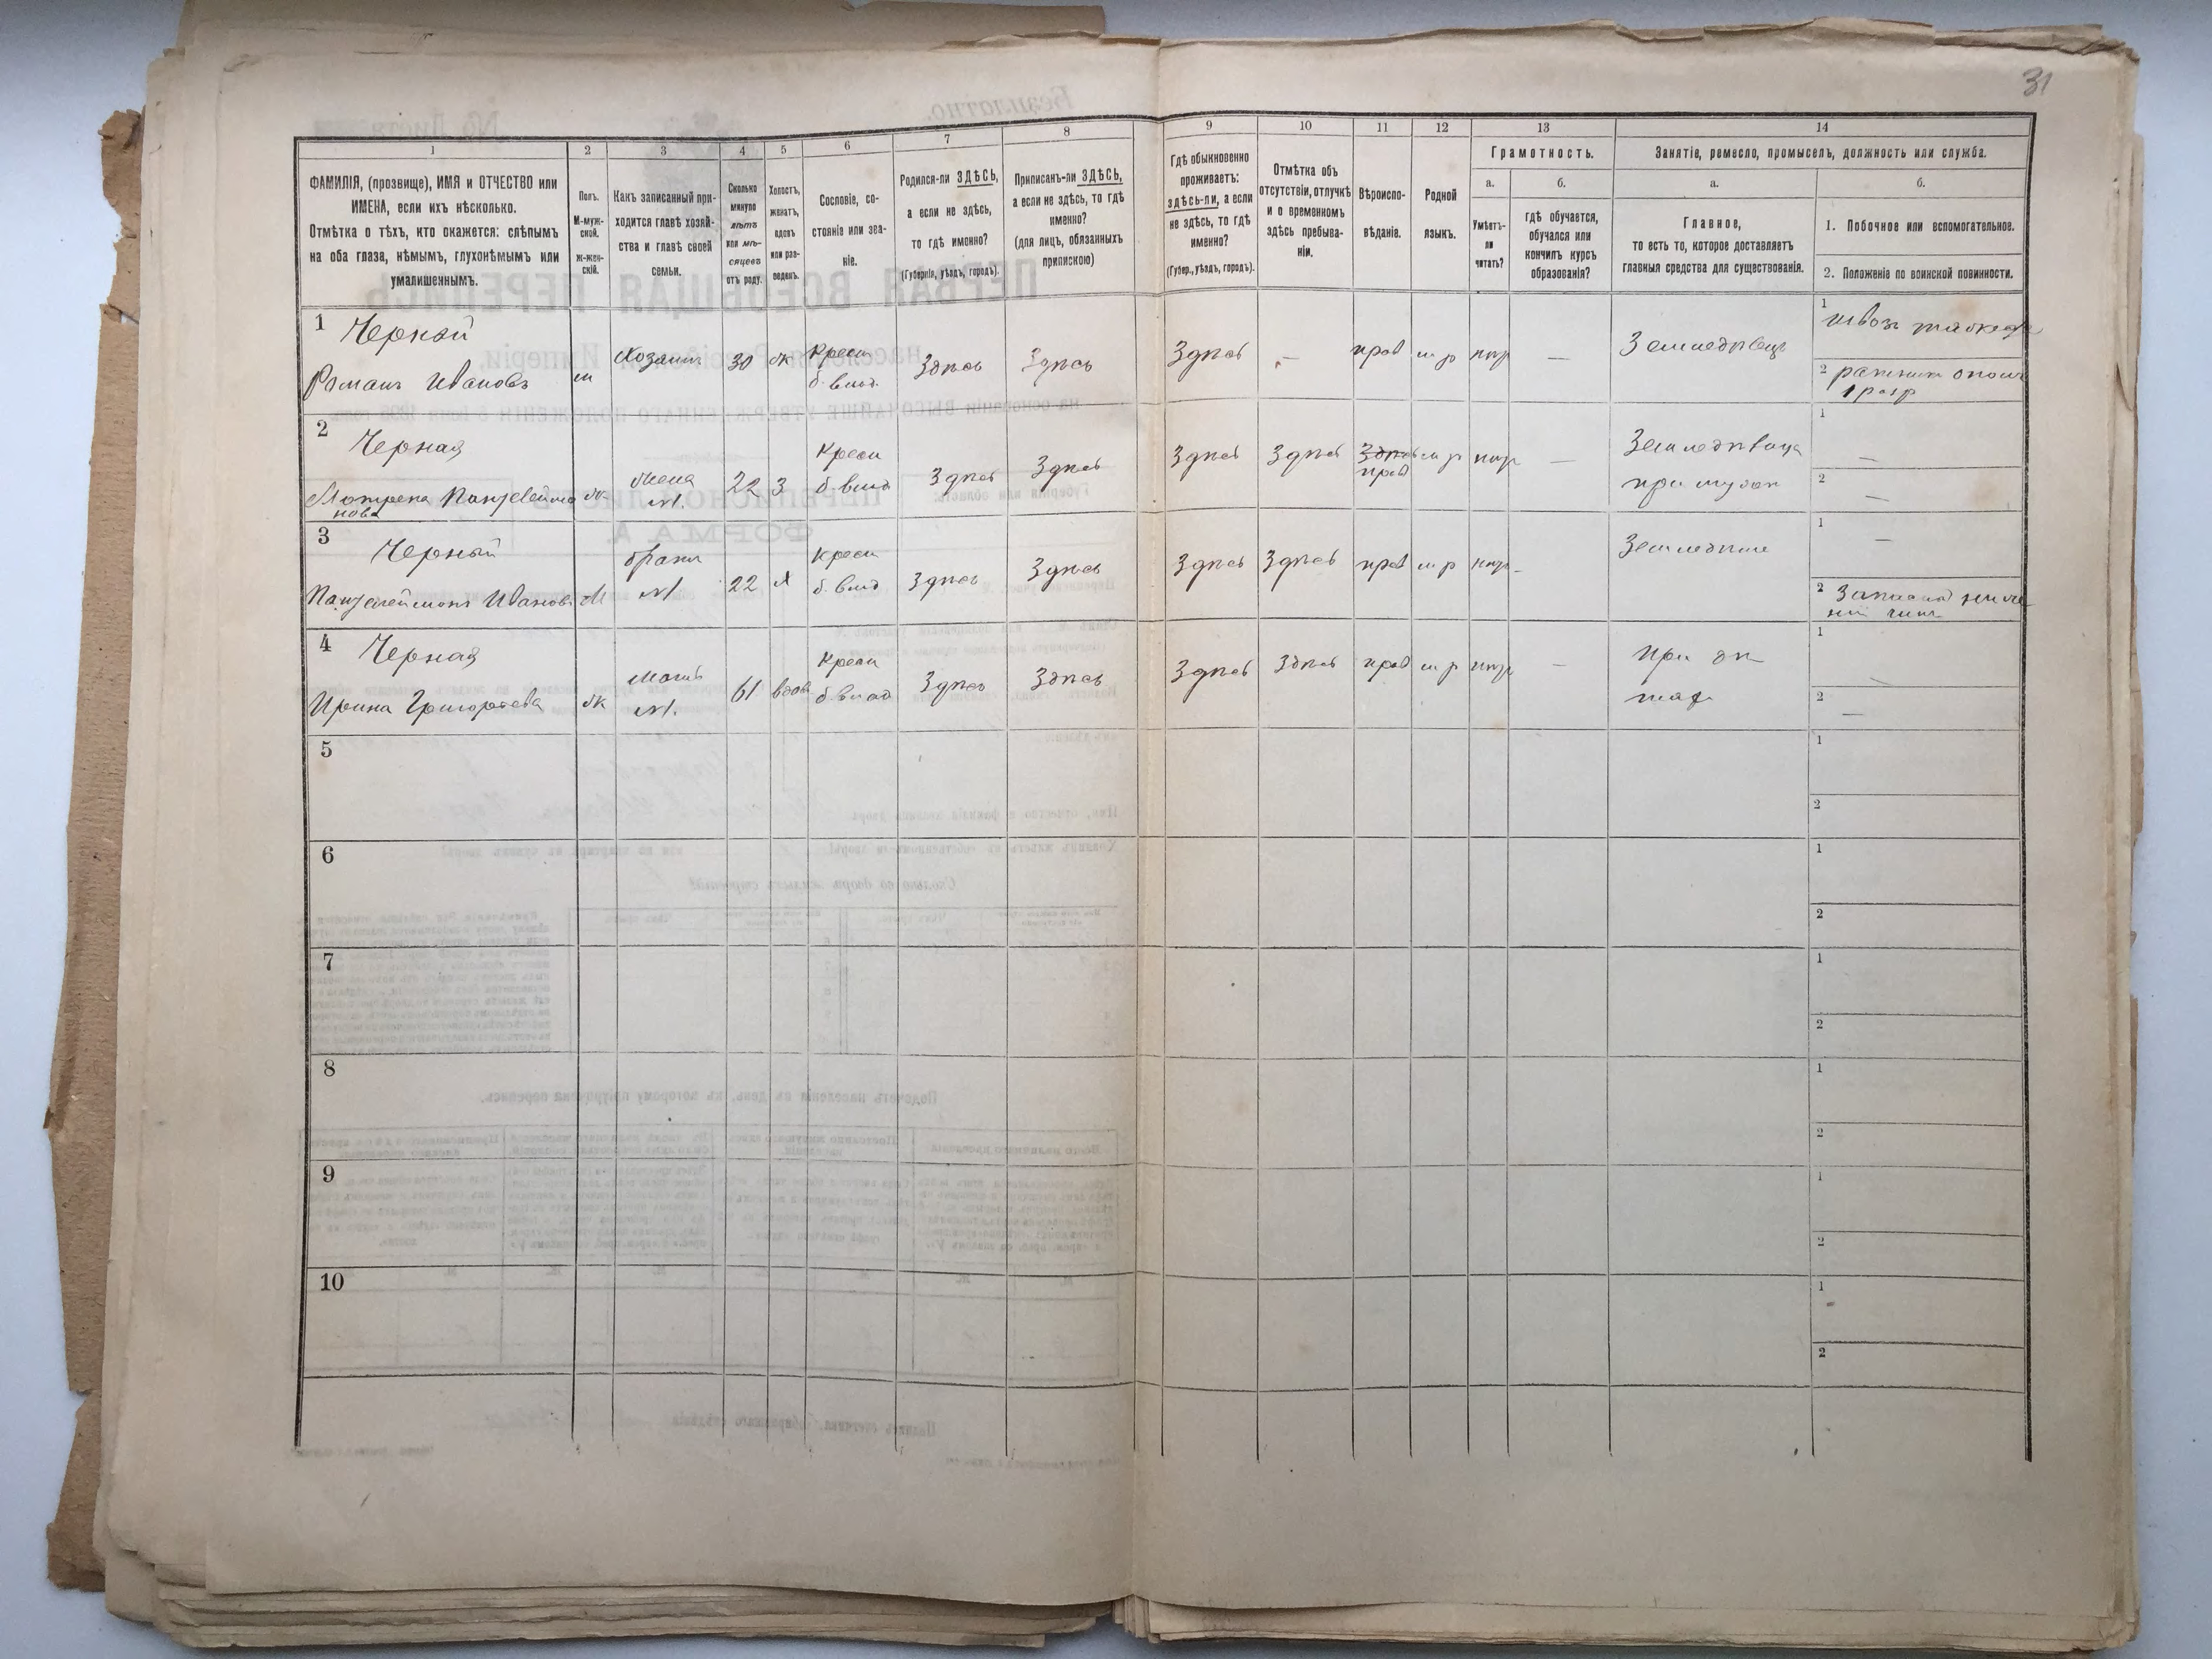 31
1 2 3 4 5 6 7 8 9 10 11 12 13 14
ФАМИЛІЯ, (прозвище), ИМЯ и ОТЧЕСТВО или
ИМЕНА, если ихъ нѣсколько.
Отмѣтка о тѣхъ, кто окажется: слѣпымъ
на оба глаза, нѣмымъ, глухонѣмымъ или
умалишеннымъ.
Полъ.
М-муж-
ской.
Ж-жен-
скій.
Какъ записанный при-
ходится главѣ хозяй-
ства и главѣ своей
семьи.
Сколько
минуло
лѣтъ
или мѣ-
сяцевъ
отъ роду.
Холостъ,
женатъ,
вдовъ
или раз-
веденъ.
Сословіе, со-
стояніе или зва-
ніе.
Родился-ли ЗДѢСЬ,
а если не здѣсь,
то гдѣ именно?
(Губернія, уѣздъ, городъ).
Приписанъ-ли ЗДѢСЬ,
а если не здѣсь, то гдѣ
именно?
(для лицъ, обязанныхъ
припискою)
Гдѣ обыкновенно
проживаетъ:
здѣсь-ли, а если
не здѣсь, то гдѣ
именно?
(Губер., уѣздъ, городъ).
Отмѣтка объ
отсутствіи, отлучкѣ
и о временномъ
здѣсь пребыва-
ніи.
Вѣроиспо-
вѣданіе.
Родной
языкъ.
Грамотность.
а.
Умѣетъ-
ли
читать?
б.
гдѣ обучается,
обучался или
кончилъ курсъ
образованія?
Занятіе, ремесло, промыселъ, должность или служба.
а.
Главное,
то есть то, которое доставляетъ
главныя средства для существованія.
б.
1. Побочное или вспомогательное.
2. Положеніе по воинской повинности.
1 Черный
Романъ Ивановъ м Хозяинъ 30 ж Крест
б. влад. Здѣсь Здѣсь Здѣсь — прав м р нѣт — Земледѣлец
1 извоз
2 ратник опол
1 разр
2 Черная
Мотрена Пантелеймо
нова ж жена
№1. 22 З Крест
б. влад Здѣсь Здѣсь Здѣсь Здѣсь Здѣсь
прав м р нѣт — Земледѣлица
при мужѣ
1 —
2 —
3 Черный
Пантелеймонъ Иванов М братъ
№1 22 Х Крест
б. влад Здѣсь Здѣсь Здѣсь Здѣсь прав м р нѣт - Земледѣлие
1 —
2 Запасной ниж
ний чинъ
4 Черная
Ирина Григорьева ж мать
№1. 61 вдов Крест
б. влад Здѣсь Здѣсь Здѣсь Здѣсь прав м р нѣт —
1
2 —
5
1
2
6
1
2
7
1
2
8
1
2
9
1
2
10
1
2